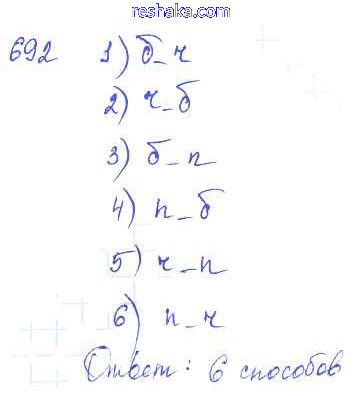 reshaka.com
692 1) б-ч
2) ч-б
3) б-п
4) п-б
5) ч-п
6) п-ч
Ответ: 6 способов